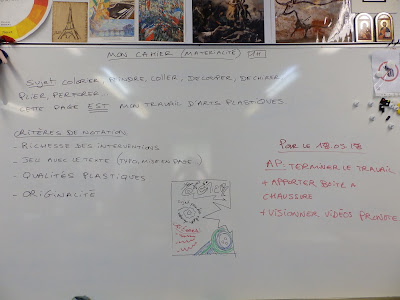 MON CAHIER (MATÉRIALITÉ)
SUJET: COLORIER, PEINDRE, COLLER, DÉCOUPER, DÉCHIRER,
PLIER, PERFORER...
CETTE PAGE EST MON TRAVAIL D'ARTS PLASTIQUES.
CRITÈRES DE NOTATION:
- RICHESSE DES INTERVENTIONS
- JEU AVEC LE TEXTE (TYPO, MISE EN PAGE)
- QUALITÉS PLASTIQUES
- ORIGINALITÉ
POUR LE 18.05
AP: TERMINER LE TRAVAIL
+ APPORTER BOÎTE À
CHAUSSURE
+ VISIONNER VIDÉOS PRONOTE